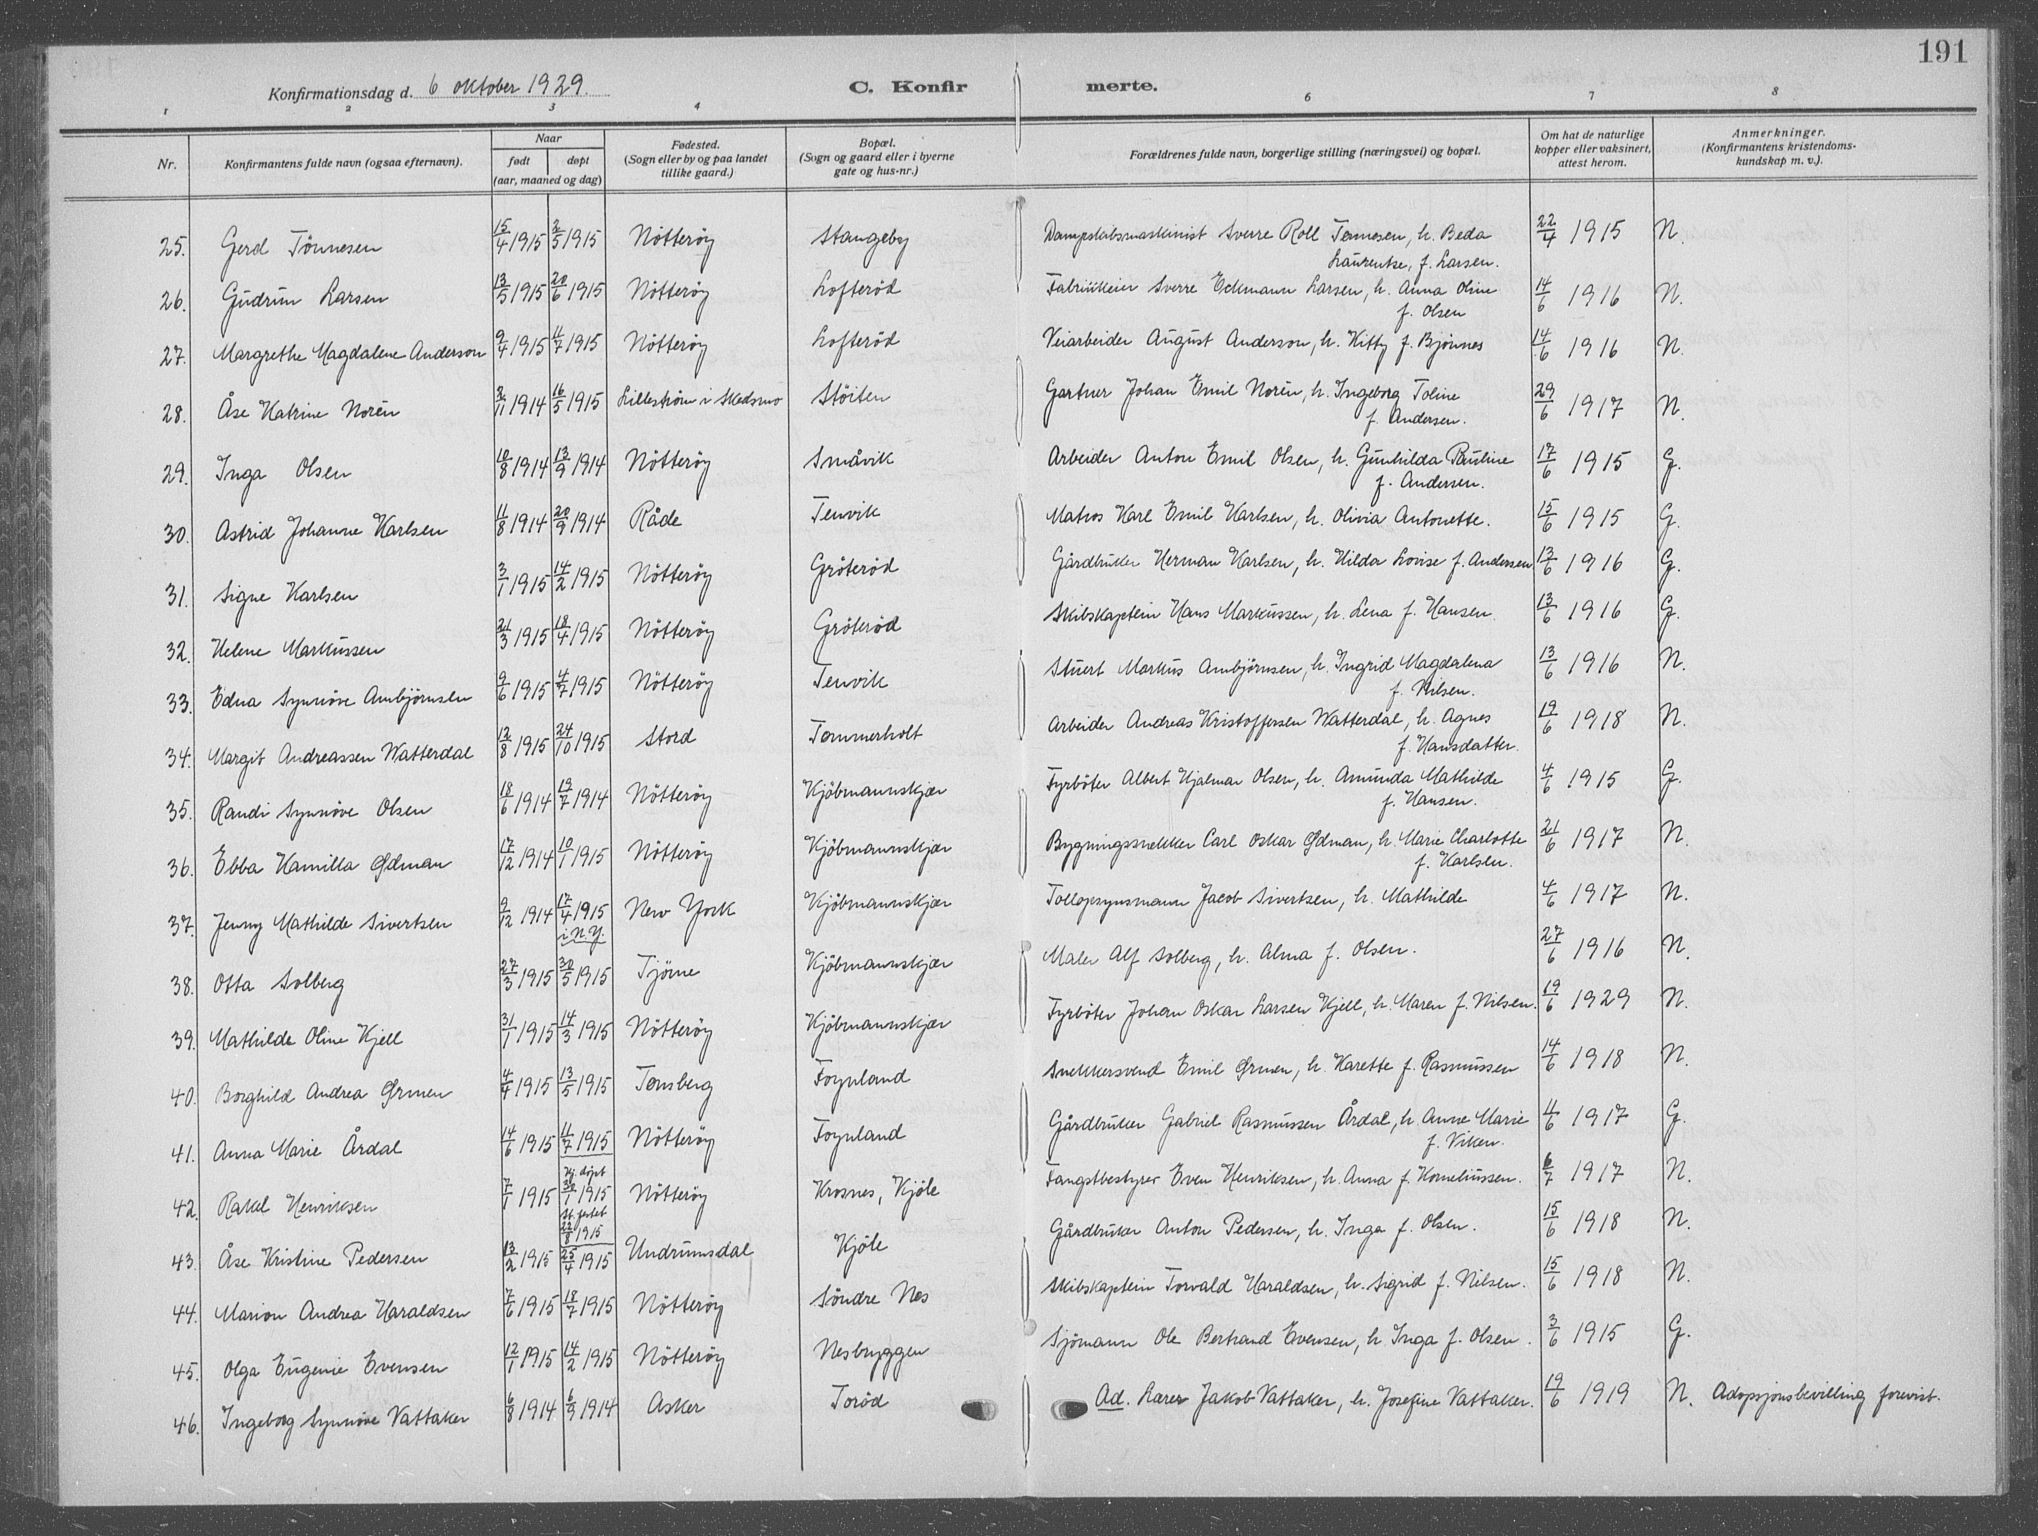 191
Konfirmationsdag d. 6 oktober 1929. C. Konfir merte.
1 2 3 4 6 7 8
Nr. Konfirmantens fulde navn (ogsaa efternavn). Naar født døpt (aar, maaned og dag) Fødested. (Sogn eller by og paa landet tillike gaard.) Bopæl. (Sogn og gaard eller i byerne gate og hus-nr.) Forældrenes fulde navn, borgerlige stilling (næringsvei) og bopæl. Om hat de naturlige kopper eller vaksinert, attest herom. Anmerkninger. (Konfirmantens kristendoms- kundskap m. v.).
25. Gerd Tönnesen 15/4 1915 2/5 1915 Nötteröy Stangeby Dampskibsmaskinist Sverre Roll Tennesen, h. Beda Laurentse, f. Larsen. 22/4 1915 N.
26. Gudrun Larsen 13/5 1915 20/6 1915 Nötteröy Lofteröd Fabrikkeier Sverre Eckmann Larsen, h. Anna Oline f. Olsen 14/6 1916 N.
27. Margrethe Magdalene Anderson 9/4 1915 11/7 1915 Nötteröy Lofteröd Veiarbeider August Anderson, h. Kitty f. Bjönnes 14/6 1916 N.
28. Åse Katrine Norén 2/11 1914 16/5 1915 Lilleström i Skedsmo Stöiten Gartner Johan Emil Norén, h. Ingeborg Toline f. Andersen. 29/6 1917 N.
29. Inga Olsen 10/8 1914 13/9 1914 Nötteröy Småvik Arbeider Anton Emil Olsen, h. Gunhilda Pauline f. Andersen. 17/6 1915 G.
30. Astrid Johanne Karlsen 11/8 1914 20/9 1914 Råde Tenvik Matros Karl Emil Karlsen, h. Olivia Antonette. 15/6 1915 G.
31. Signe Karlsen 3/1 1915 14/2 1915 Nötteröy Gröteröd Gårdbruker Herman Karlsen, h. Hilda Lovise f. Andersen 13/6 1916 G.
32. Helene Markussen 21/3 1915 18/4 1915 Nötteröy Gröteröd Skibskaptein Hans Markussen, h. Lena f. Hansen. 13/6 1916 G.
33. Edna Synnöve Ambjörnsen 9/6 1915 4/7 1915 Nötteröy Tenvik Stuert Markus Ambjörnsen, h. Ingrid Magdalena f. Nilsen. 13/6 1916 N.
34. Margit Andreassen Watterdal 12/8 1915 24/10 1915 Stord Tommerholt Arbeider Andreas Kristoffersen Watterdal, h. Agnes f. Hansdatter. 19/6 1918 N.
35. Randi Synnöve Olsen 18/6 1914 19/7 1914 Nötteröy Kjöbmannskjær Fyrböter Albert Hjalmar Olsen, h. Amunda Mathilde f. Hansen. 4/6 1915 G.
36. Ebba Kamilla Ødman 17/12 1914 10/1 1915 Nötteröy Kjöbmannskjær Bygningssnekker Carl Oskar Ødman, h. Marie Charlotte f. Karlsen. 21/6 1917 N.
37. Jenny Mathilde Sivertsen 9/12 1914 17/4 1915 i N.Y. New York Kjöbmannskjær Tollopsynsmann Jacob Sivertsen, h. Mathilde 4/6 1917 N.
38. Otta Solberg 27/3 1915 30/5 1915 Tjöme Kjöbmannskjær Maler Alf Solberg, h. Alma f. Olsen. 27/6 1916 N.
39. Mathilde Oline Kjell 31/1 1915 14/3 1915 Nötteröy Kjöbmannskjær Fyrböter Johan Oskar Larsen Kjell, h. Maren f. Nilsen. 19/6 1929 N.
40. Borghild Andrea Ormen 4/4 1915 13/5 1915 Tønsberg Foynland Snekkersvend Emil Ormen, h. Karette f. Rasmussen 14/6 1918 N.
41. Anna Marie Årdal 14/6 1915 11/7 1915 Nötteröy Foynland Gårdbruker Gabriel Rasmussen Årdal, h. Anne Marie f. Viken. 11/6 1917 G.
42. Rakel Henriksen 7/1 1915 Hj. döpt 1915 st. festet 22/8 1915 Nötteröy Krosnes, Kjöle Fangstbestyrer Even Henriksen, h. Anna f. Korneliussen. 6/7 1917 N.
43. Åse Kristine Pedersen 13/2 1915 25/4 1915 Undrumsdal Kjöle Gårdbruker Anton Pedersen, h. Inga f. Olsen. 15/6 1918 N.
44. Marion Andrea Haraldsen 7/6 1915 18/7 1915 Nötteröy Söndre Nes Skibskaptein Torvald Haraldsen, h. Sigrid f. Nilsen. 15/6 1918 N.
45. Olga Eugenie Evensen 12/1 1915 14/2 1915 Nötteröy Nesbryggen Sjömann Ole Bertrand Evensen, h. Inga f. Olsen. 3/6 1915 G.
46. Ingeborg Synnöve Vattaker 6/8 1914 6/9 1914 Asker Toröd Ad. Lærer Jakob Vattaker, h. Josefine Vattaker. 19/6 1919 N. Adopsjonsbevilling forevist.